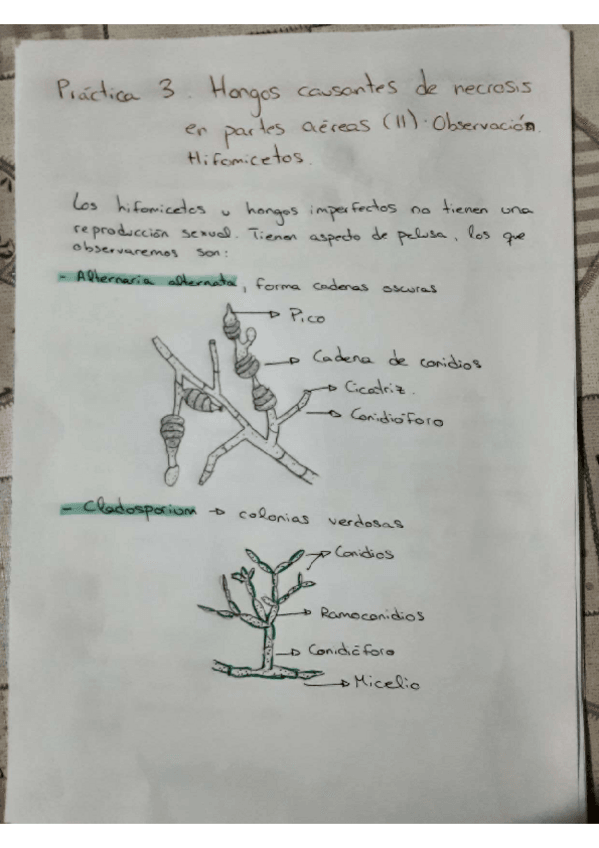 Práctica 3. Hongos causantes de necrosis
en partes aéreas (II). Observación
Hifomicetos.
Los hifomicetos u hongos imperfectos no tienen una
reproducción sexual. Tienen aspecto de pelusa, los que
observaremos son:
- Alternaria alternata, forma cadenas oscuras
→ Pico
→ Cadena de conidios
→ Cicatriz.
→ Conidióforo
- Cladosporium → colonias verdosas
→ Conidios
→ Ramoconidios
→ Conidióforo
→ Micelio